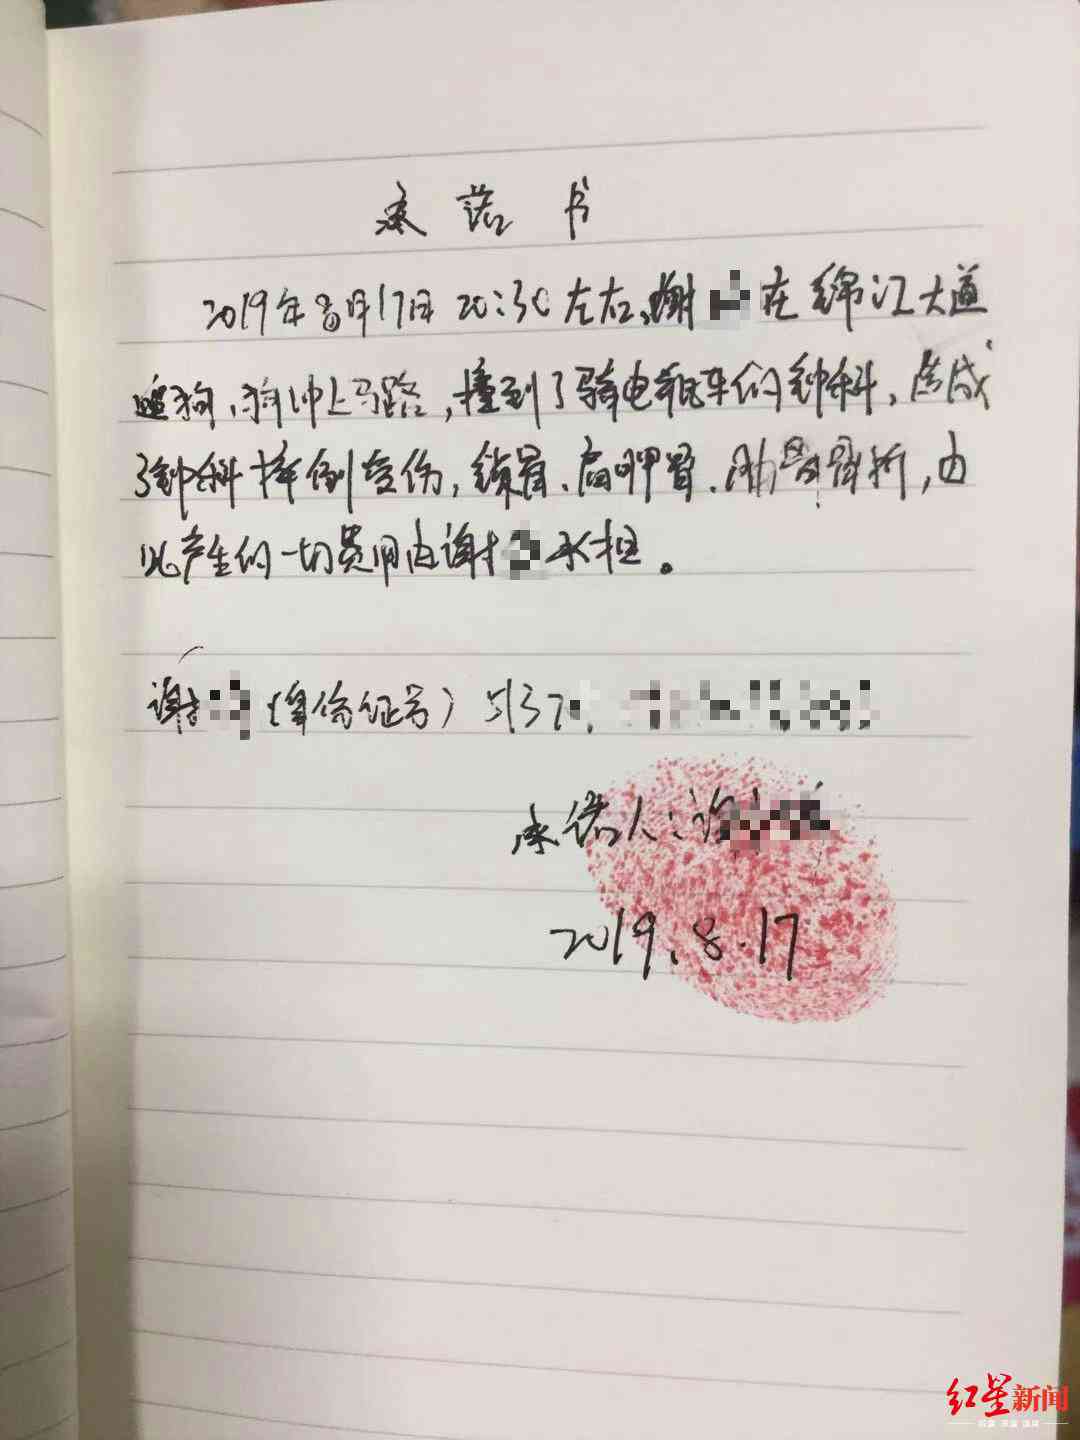 承诺书
2019年8月17日20:30左右,谢 在锦江大道
遛狗,狗冲上马路,撞到了骑电瓶车的钟科,造成
了钟科摔倒受伤,锁骨、肩胛骨、肋骨骨折,由
此产生的一切费用由谢 承担。
谢 (身份证号)5137
承诺人:谢
2019.8.17
红星新闻